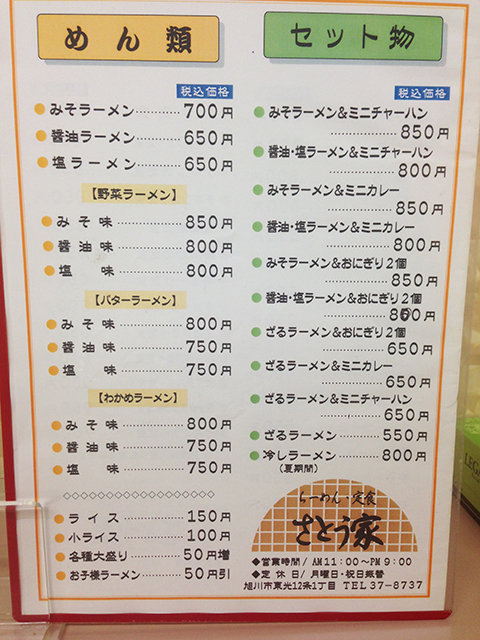 めん類
税込価格
みそラーメン…………700円
醤油ラーメン…………650円
塩ラーメン……………650円
【野菜ラーメン】
みそ味…………………850円
醤油味…………………800円
塩　味…………………800円
【バターラーメン】
みそ味…………………800円
醤油味…………………750円
塩　味…………………750円
【わかめラーメン】
みそ味…………………800円
醤油味…………………750円
塩　味…………………750円
◇◇◇◇◇◇◇◇◇◇◇◇◇◇◇◇◇◇
ライス…………………150円
小ライス………………100円
各種大盛り……………50円増
お子様ラーメン………50円引
セット物
税込価格
みそラーメン&ミニチャーハン
……………………850円
醤油・塩ラーメン&ミニチャーハン
……………………800円
みそラーメン&ミニカレー
……………………850円
醤油・塩ラーメン&ミニカレー
……………………800円
みそラーメン&おにぎり2個
……………………850円
醤油・塩ラーメン&おにぎり2個
……………………800円
ざるラーメン&おにぎり2個
……………………650円
ざるラーメン&ミニカレー
……………………650円
ざるラーメン&ミニチャーハン
……………………650円
ざるラーメン…………550円
冷しラーメン…………800円
(夏期間)
らーめん・定食
さとう家
◆営業時間/AM11:00～PM9:00
◆定休日/月曜日・祝日振替
旭川市東光12条1丁目 TEL37-8737